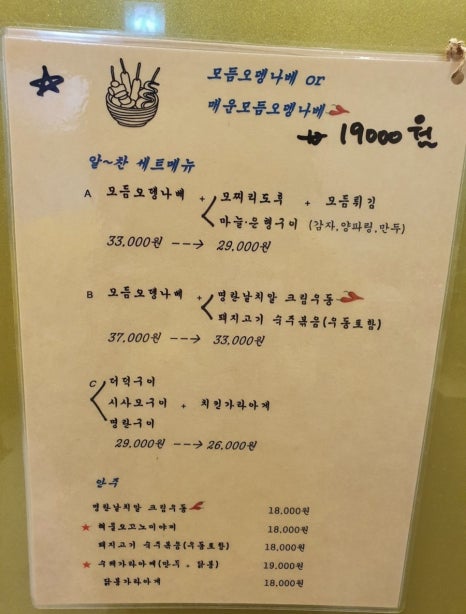 모듬오뎅나베 or
매운모듬오뎅나베
19000원
알~찬 세트메뉴
A 모듬오뎅나베 + 모찌리도후 + 모듬튀김
마늘·은행구이 (감자,양파링,만두)
33,000원 ---> 29,000원
B 모듬오뎅나베 + 명란날치알 크림우동
돼지고기 숙주볶음(우동포함)
37,000원 ---> 33,000원
C 더덕구이
시사모구이 + 치킨가라아게
명란구이
29,000원 ---> 26,000원
안주
명란날치알 크림우동 18,000원
★ 해물오꼬노미야끼 18,000원
돼지고기 숙주볶음(우동포함) 18,000원
★ 수제가라아게(만두 + 닭봉) 19,000원
닭봉가라아게 18,000원